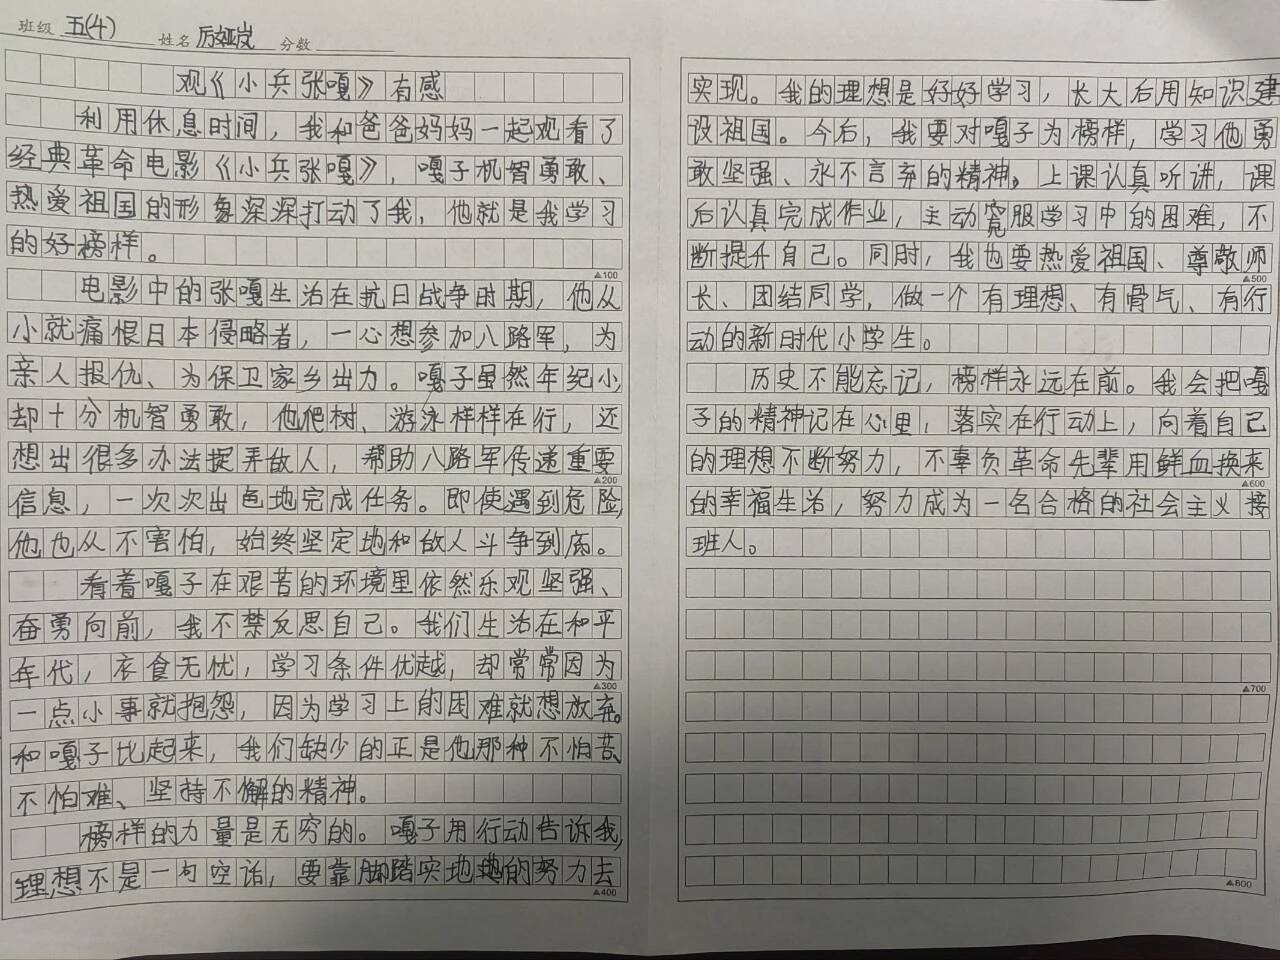 班级 五(4) 姓名 厉娅岚 分数
观《小兵张嘎》有感
利用休息时间，我和爸爸妈妈一起观看了
经典革命电影《小兵张嘎》，嘎子机智勇敢、
热爱祖国的形象深深打动了我，他就是我学习
的好榜样。
▲100
电影中的张嘎生活在抗日战争时期，他从
小就痛恨日本侵略者，一心想参加八路军，为
亲人报仇、为保卫家乡出力。嘎子虽然年纪小，
却十分机智勇敢，他爬树、游泳样样在行，还
想出很多办法捉弄敌人，帮助八路军传递重要
▲200
信息，一次次出色地完成任务。即使遇到危险，
他也从不害怕，始终坚定地和敌人斗争到底。
看着嘎子在艰苦的环境里依然乐观坚强、
奋勇向前，我不禁反思自己。我们生活在和平
年代，衣食无忧，学习条件优越，却常常因为
▲300
一点小事就抱怨，因为学习上的困难就想放弃。
和嘎子比起来，我们缺少的正是他那种不怕苦、
不怕难、坚持不懈的精神。
榜样的力量是无穷的。嘎子用行动告诉我，
理想不是一句空话，要靠脚踏实地的努力去
▲400
实现。我的理想是好好学习，长大后用知识建
设祖国。今后，我要对嘎子为榜样，学习他勇
敢坚强、永不言弃的精神，上课认真听讲，课
后认真完成作业，主动克服学习中的困难，不
断提升自己。同时，我也要热爱祖国、尊敬师
▲500
长、团结同学，做一个有理想、有骨气、有行
动的新时代小学生。
历史不能忘记，榜样永远在前。我会把嘎
子的精神记在心里，落实在行动上，向着自己
的理想不断努力，不辜负革命先辈用鲜血换来
▲600
的幸福生活，努力成为一名合格的社会主义接
班人。
▲700
▲800